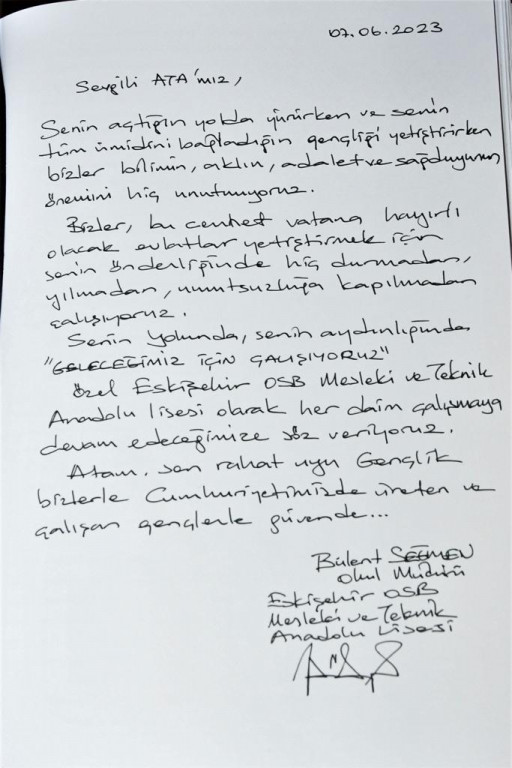 07.06.2023
Sevgili ATA'mız,
Senin açtığın yolda yürürken ve senin
tüm ümidini bağladığın gençliği yetiştirirken
bizler bilimin, aklın, adalet ve sağduyunun
önemini hiç unutmuyoruz.
Bizler, bu cennet vatana hayırlı
olacak evlatlar yetiştirmek için
senin önderliğinde hiç durmadan,
yılmadan, umutsuzluğa kapılmadan
çalışıyoruz.
Senin yolunda, senin aydınlığında
"GELECEĞİMİZ İÇİN ÇALIŞIYORUZ"
Özel Eskişehir OSB Mesleki ve Teknik
Anadolu Lisesi olarak her daim çalışmaya
devam edeceğimize söz veriyoruz.
Atam. sen rahat uyu Gençlik
bizlerle Cumhuriyetimizde üreten ve
çalışan gençlerle güvende...
Bülent SEĞMEN
Okul Müdürü
Eskişehir OSB
Mesleki ve Teknik
Anadolu Lisesi